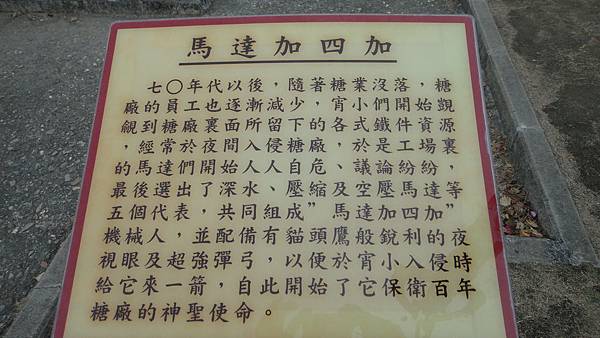 馬達加四加
七〇年代以後，隨著糖業沒落，糖
廠的員工也逐漸減少，宵小們開始覬
覦到糖廠裏面所留下的各式鐵件資源
，經常於夜間入侵糖廠，於是工場裏
的馬達們開始人人自危、議論紛紛，
最後選出了深水、壓縮及空壓馬達等
五個代表，共同組成”馬達加四加”
機械人，並配備有貓頭鷹般銳利的夜
視眼及超強彈弓，以便於宵小入侵時
給它來一箭，自此開始了它保衛百年
糖廠的神聖使命。